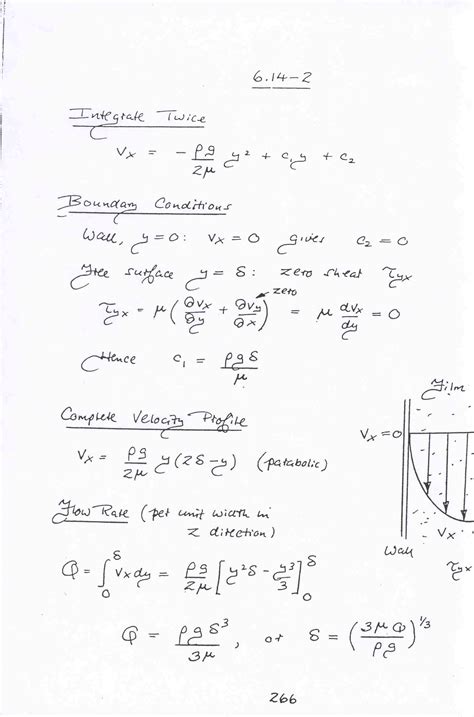 6.14-2
Integrate Twice
Vx = - ρg/2μ y² + c₁y + c₂
Boundary Conditions
Wall, y=0: Vx = 0 gives c₂ = 0
Free surface y = δ: zero shear τyx
τyx = μ(∂Vx/∂y + ∂Vy/∂x) = μ dVx/dy = 0
zero
Hence c₁ = ρgδ/μ
Film
Complete Velocity Profile
Vx=0
Vx = ρg/2μ y(2δ-y) (parabolic)
Flow Rate (per unit width in
z direction)
Vx
Wall
τyx
Q = ∫₀^δ Vx dy = ρg/2μ [y²δ - y³/3]₀^δ
Q = ρgδ³/3μ, or δ = (3μQ/ρg)^1/3
266